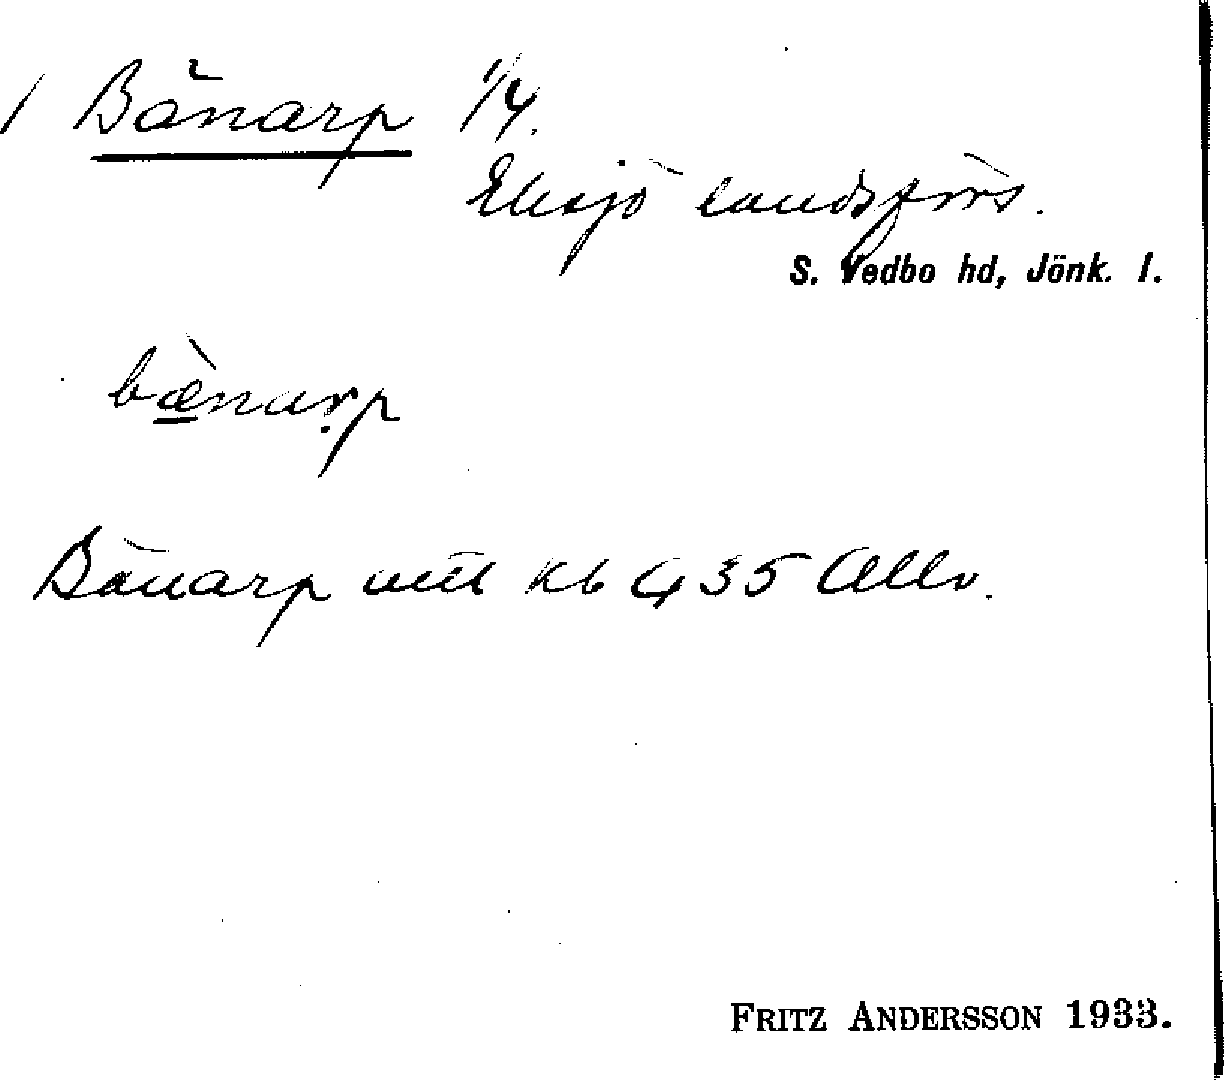 1 Bänarp 1/4.
Eksjö landsförs.
S. Vedbo hd, Jönk. l.
bæ̀narp
Bänarp mtl kb 435 Allv.
FRITZ ANDERSSON 1933.